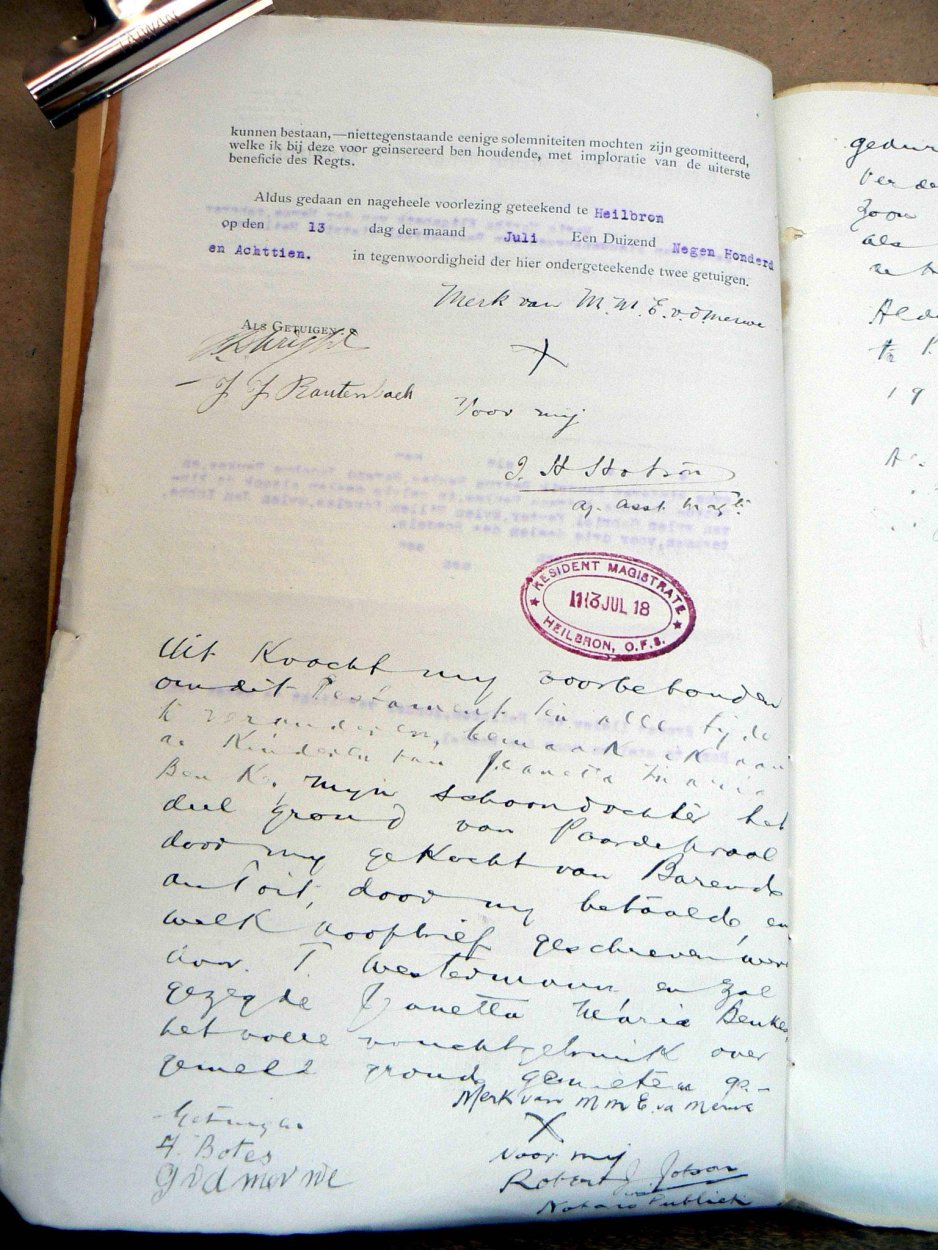 TAIWAN
kunnen bestaan,—niettegenstaande eenige solemniteiten mochten zijn geomitteerd,
welke ik bij deze voor geinsereerd ben houdende, met imploratie van de uiterste
beneficie des Regts.
Aldus gedaan en nageheele voorlezing geteekend te Heilbron
op den 13 dag der maand Juli Een Duizend Negen Honderd
en Achttien. in tegenwoordigheid der hier ondergeteekende twee getuigen.
Merk van M. M. E. v. d. Merwe
ALS GETUIGEN
X
J J Rautenbach
Voor mij
Ag. Asst. Magte.
RESIDENT MAGISTRATE
13 JUL 18
HEILBRON, O.F.S.
Uit Kracht my voorbehouden
om dit Testament te alle tyde
te veranderen, bemaak ik aan
de Kinderen van Janetta Maria
BeuKes, mijn schoondochter het
deel grond van Paardekraal
door my geKocht van Barend
du Toit, door my betaald, en
welk Koopbrief geschreven werd
door T Westermann en zal
gezegde Janetta Maria Beukes
het volle vruchtgebruik over
gemeld grond genieten
Merk van M M E. vd Merwe
X
Getuigen
H. Botes
G v d merwe
Voor mij
Robert J. Jobson
Notaris Publiek
gedur
Verde
Zoon
als
Aldu
te
19